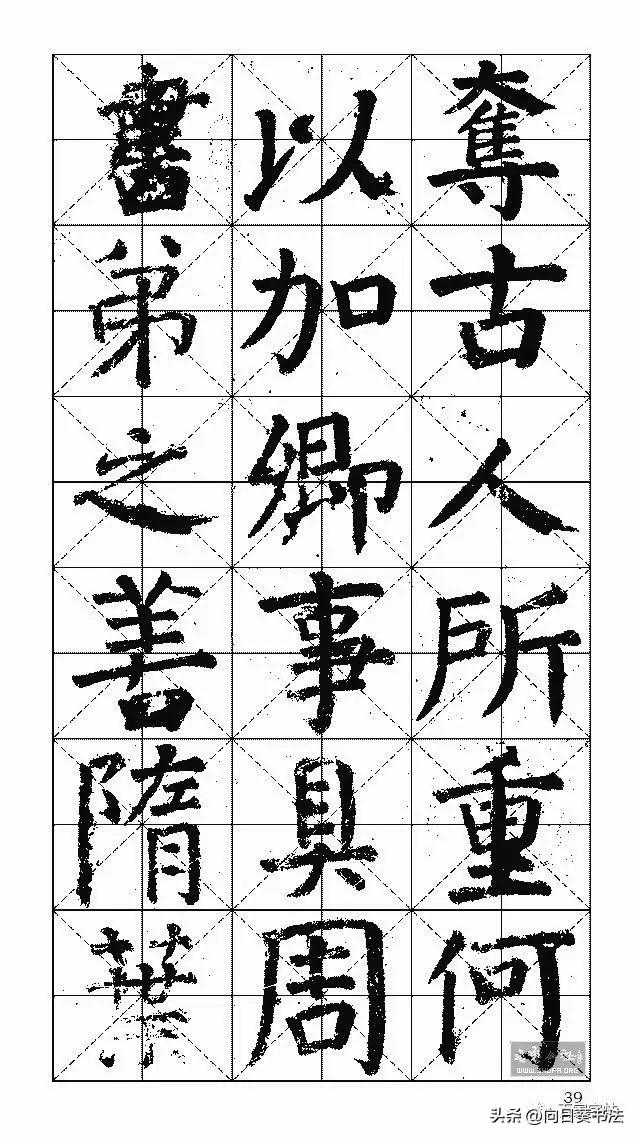 奪古人所重何
以加卿事具周
書弟之善隋葉
39
头条 @向日葵书法